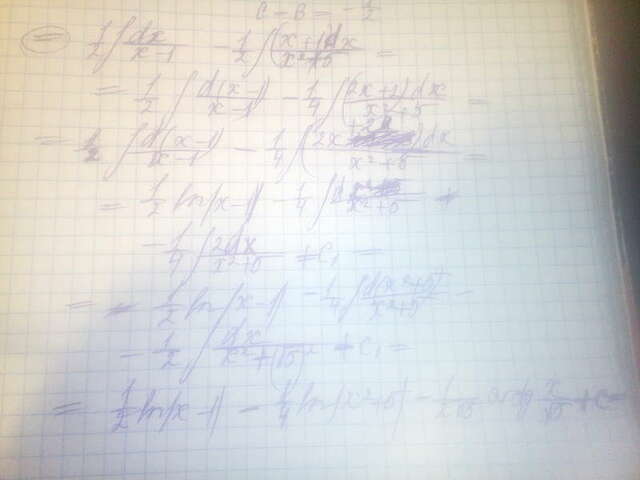 C - B = -1/2
= 1/2 ∫ dx/(x-1) - 1/2 ∫ (x+1)dx/(x²+5) =
= 1/2 ∫ d(x-1)/(x-1) - 1/4 ∫ (2x+2)dx/(x²+5) =
= 1/2 ∫ d(x-1)/(x-1) - 1/4 ∫ (2x+2)dx/(x²+5) =
= 1/2 ln|x-1| - 1/4 ∫
- 1/4 ∫ 2dx/(x²+5) + C₁ =
= 1/2 ln|x-1| - 1/4 ∫ d(x²+5)/(x²+5) -
- 1/2 ∫ dx/(x²+(√5)²) + C₁ =
= 1/2 ln|x-1| - 1/4 ln|x²+5| - 1/(2√5) arctg x/√5 + C